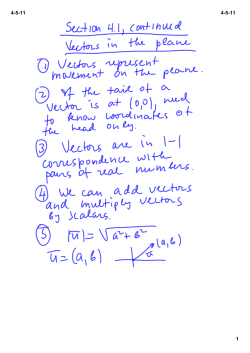 4-5-11 4-5-11
Section 4.1, continued
Vectors in the plane
① Vectors represent
movement on the plane.
② If the tail of a
vector is at (0,0), need
to know coordinates of
the head only.
③ Vectors are in 1-1
correspondence with
pairs of real numbers.
④ We can add vectors
and multiply vectors
by scalars.
⑤ |u̅| = √a²+b²
u̅ = (a,b) (a,b)
u̅
1